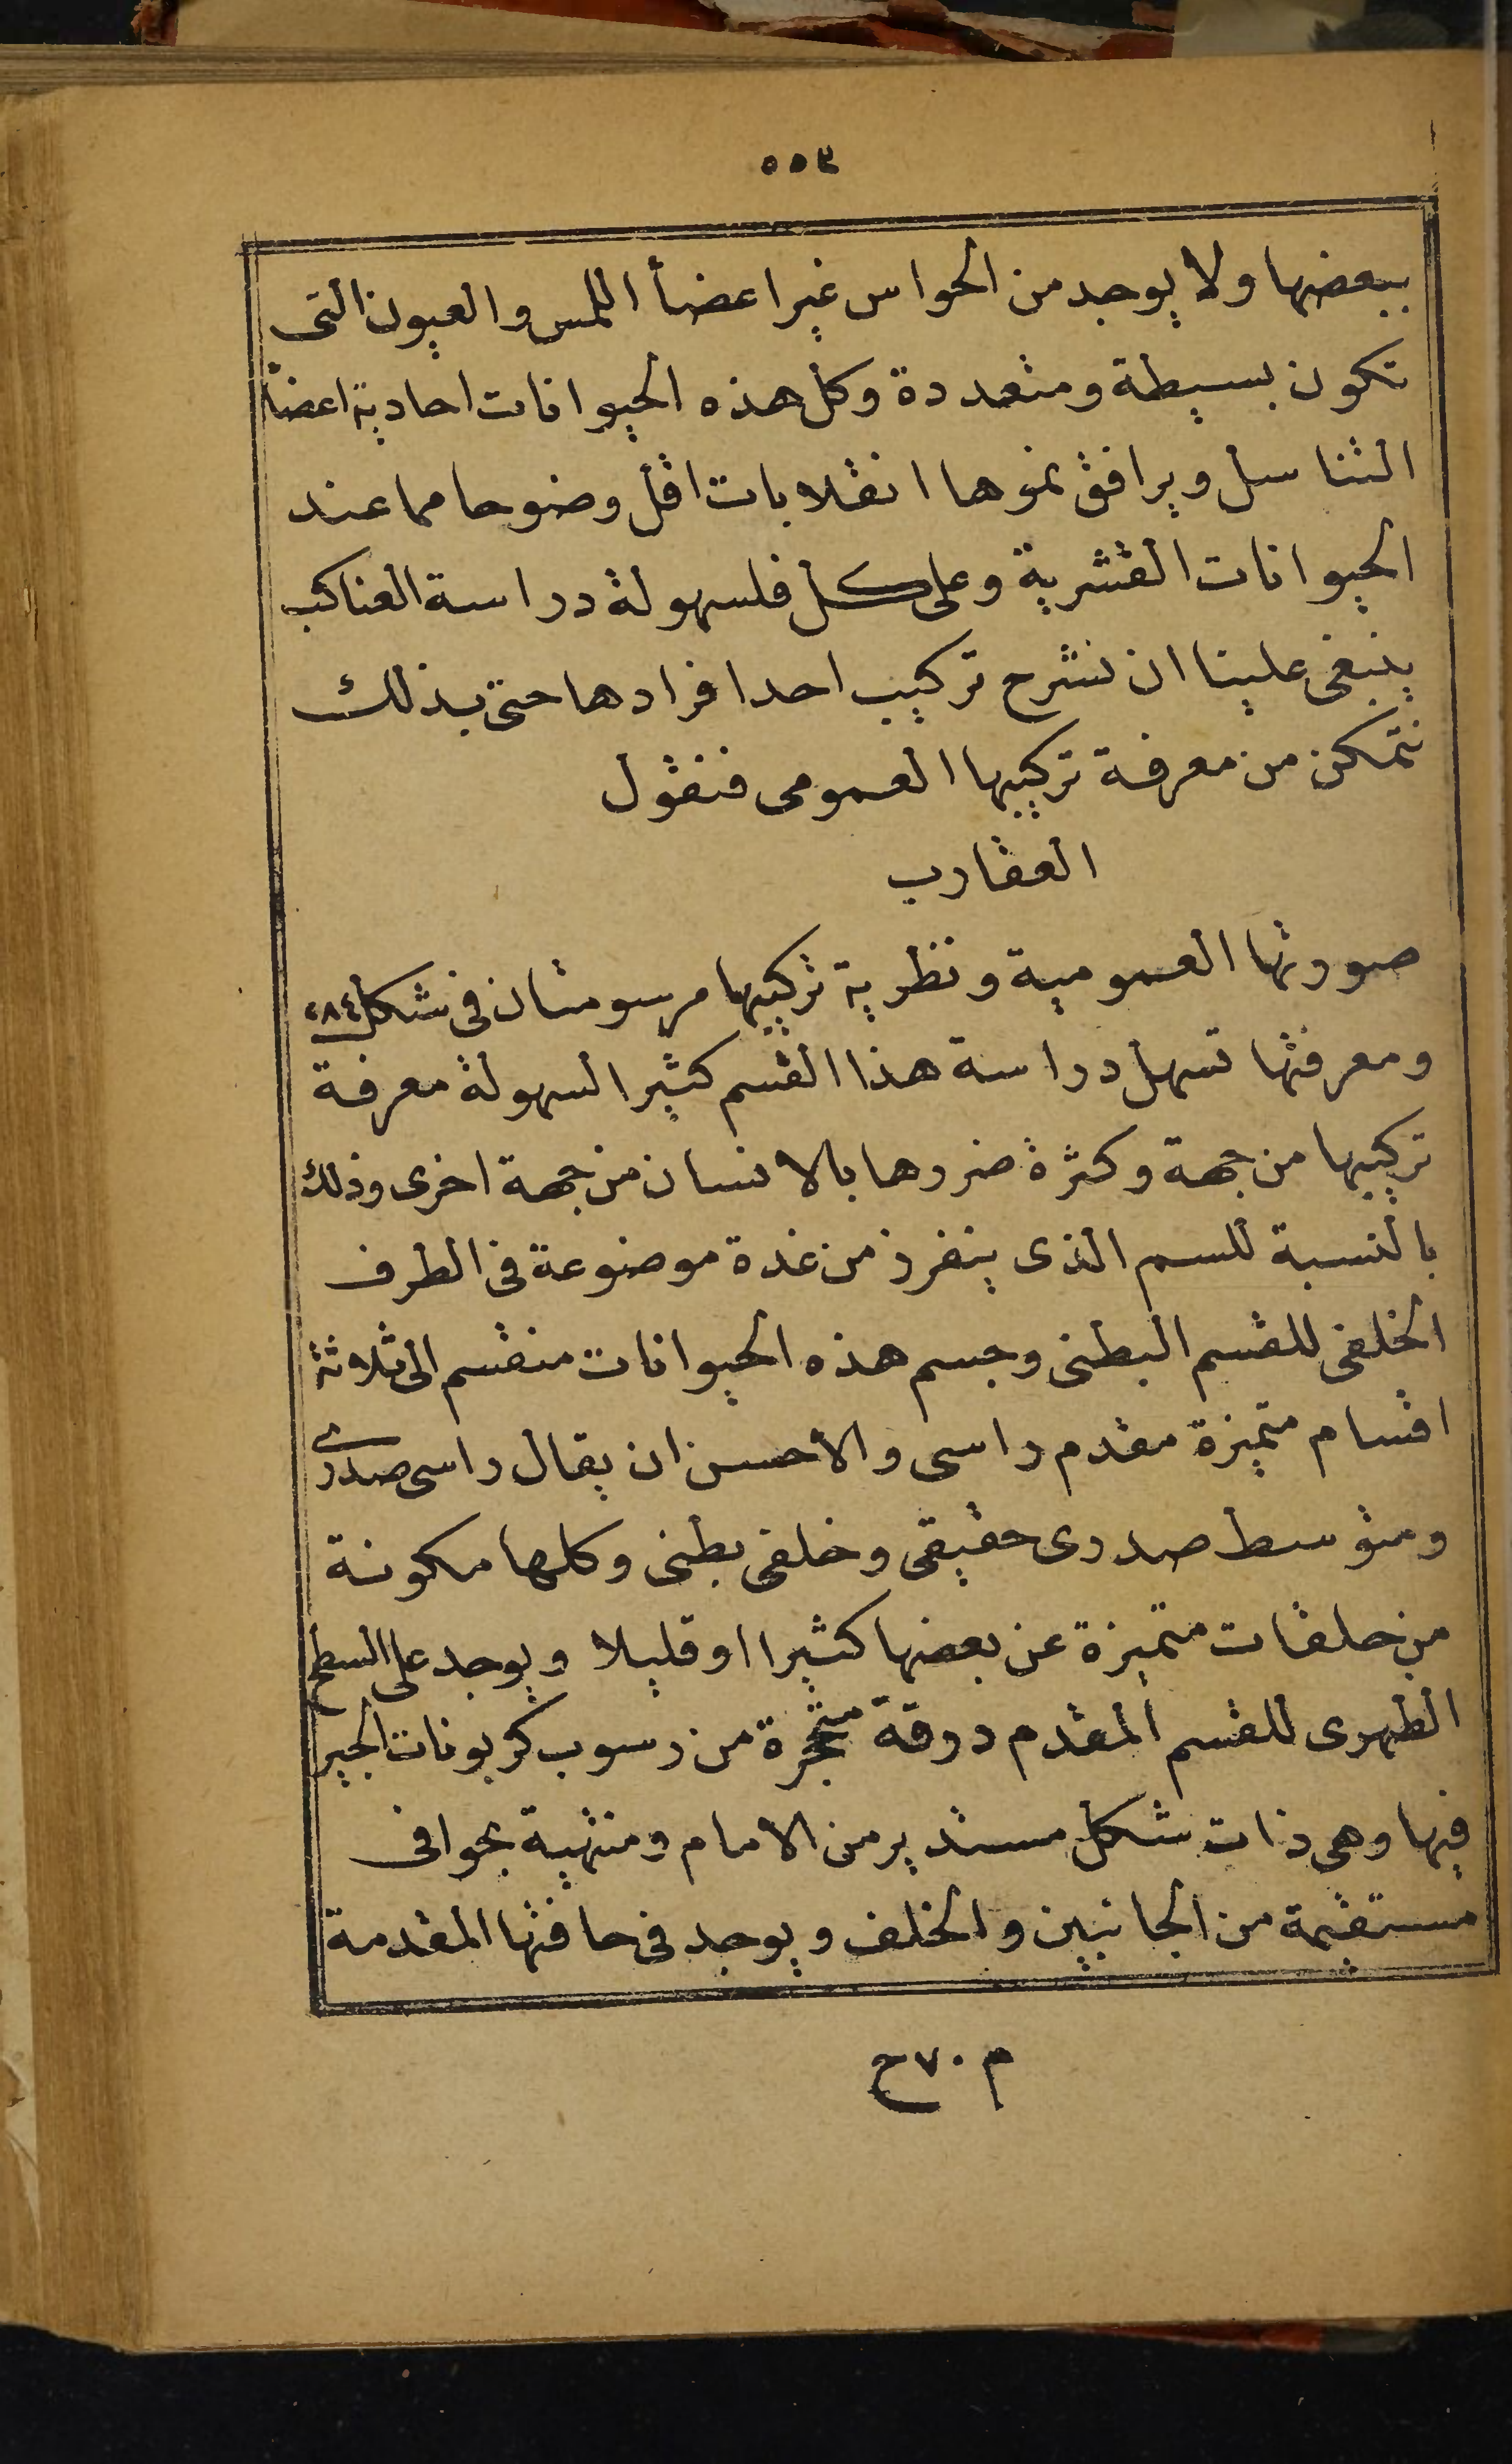 ٥٥٣
ببعضها ولا يوجد من الحواس غير اعضأ اللمس والعيون التى
تكون بسيطة ومتعددة وكل هذه الحيوانات احادية اعضأ
التناسل ويرافق نموها انقلابات اقل وضوحا مما عند
الحيوانات القشرية وعلى كل فلسهولة دراسة العناكب
ينبغى علينا ان نشرح تركيب احد افرادها حتى بذلك
نتمكن من معرفة تركيبها العمومى فنقول
العقارب
صورتها العمومية ونظرية تركيبها مرسومتان فى شكل ٢٨٤
ومعرفتها تسهل دراسة هذا القسم كثيرا لسهولة معرفة
تركيبها من جهة وكثرة ضررها بالانسان من جهة اخرى وذلك
بالنسبة للسم الذى ينفرز من غدة موضوعة فى الطرف
الخلفى للقسم البطنى وجسم هذه الحيوانات منقسم الى ثلاثة
اقسام متميزة مقدم راسى والأحسن ان يقال راسى صدرى
ومتوسط صدرى حقيقى وخلفى بطنى وكلها مكونة
من حلقات متميزة عن بعضها كثيرا او قليلا ويوجد على السطح
الظهرى للقسم المقدم درقة متحجرة من رسوب كربونات الجير
فيها وهى ذات شكل مستدير من الامام ومنتهية بحوافى
مستقيمة من الجانبين والخلف ويوجد فى حافتها المقدمة
م ٧٠ ح